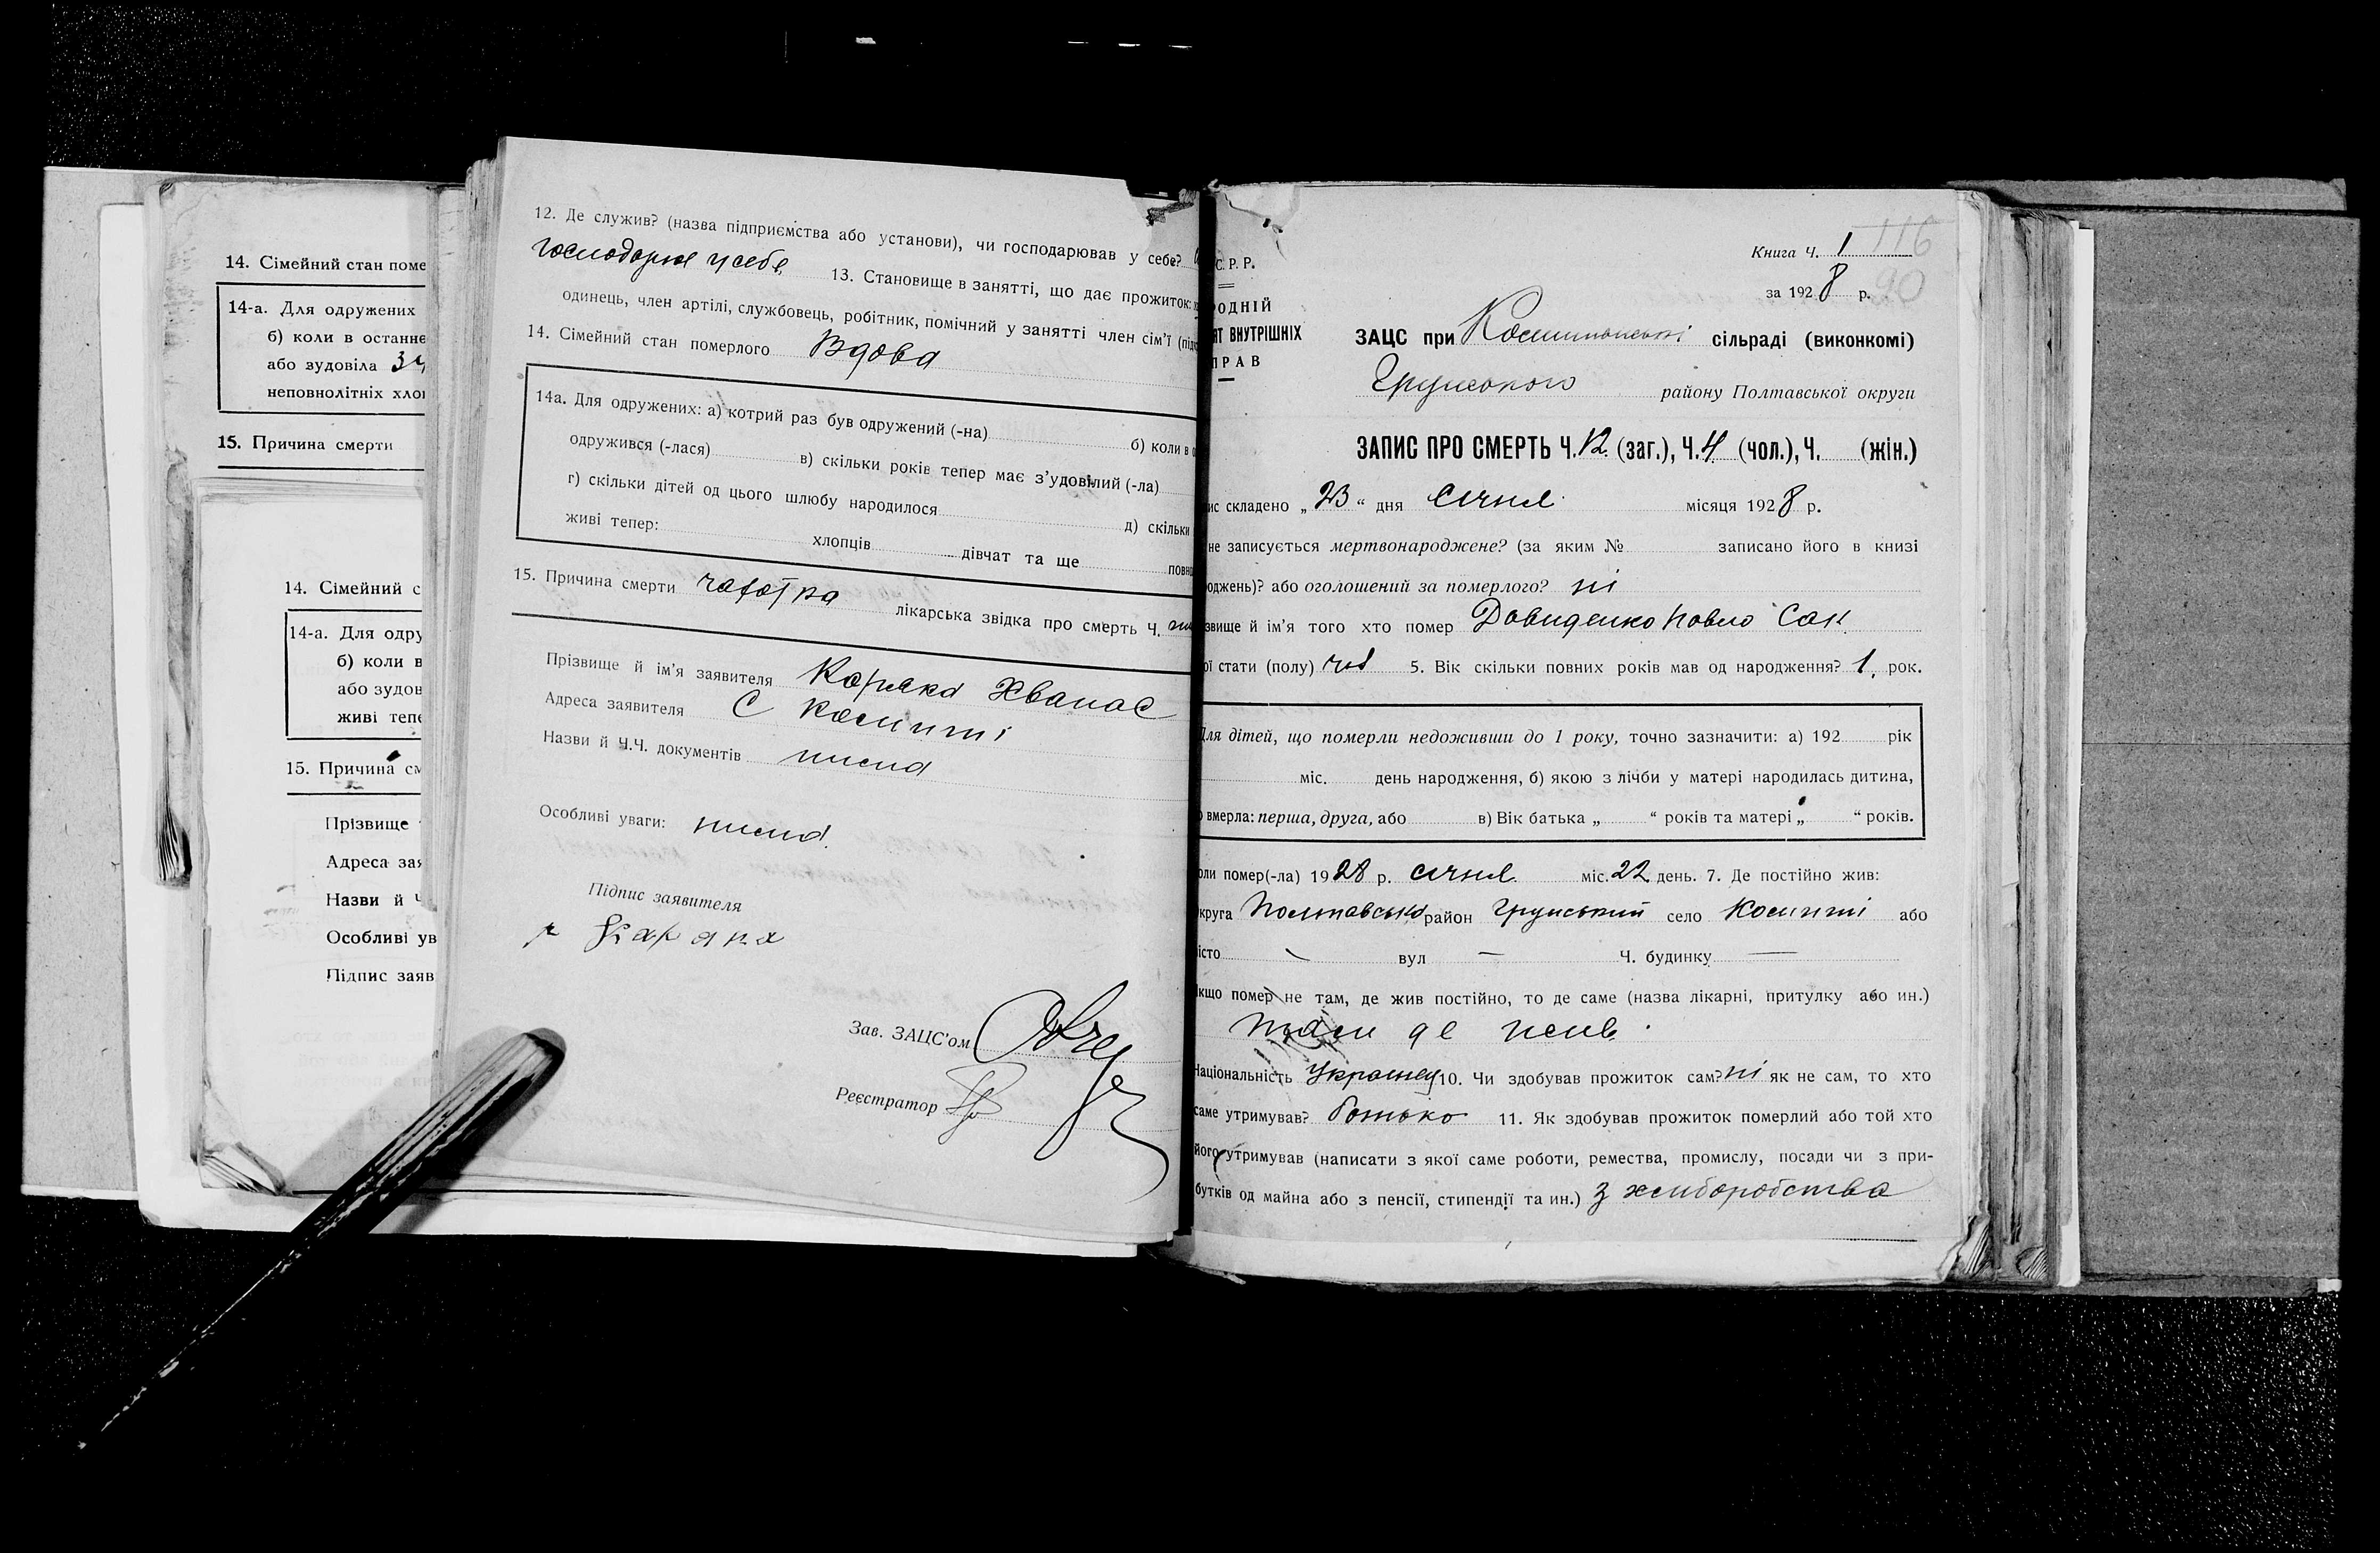 14. Сімейний стан поме
14-а. Для одружених
б) коли в останнє
або зудовіла 34
неповнолітніх хлоп
15. Причина смерти
14. Сімейний с
14-а. Для одру
б) коли в
або зудов
живі тепе
15. Причина см
Прізвище
Адреса зая
Назви й Ч
Особливі ув
Підпис заяв
12. Де служив? (назва підприємства або установи), чи господарював у себе?
господарює у себе 13. Становище в занятті, що дає прожиток:
одинець, член артілі, службовець, робітник, помічний у занятті член сім'ї (під
14. Сімейний стан померлого Вдова
14а. Для одружених: а) котрий раз був одружений (-на) б) коли в о
одружився (-лася) в) скільки років тепер має з'удовілий (-ла)
г) скільки дітей од цього шлюбу народилося д) скільки
живі тепер: хлопців дівчат та ще повно
15. Причина смерти чахотка лікарська звідка про смерть Ч.
Прізвище й ім'я заявителя Каряка Хванас
Адреса заявителя С Косминті
Назви й Ч.Ч. документів нима
Особливі уваги: нима
Підпис заявителя
Зав. ЗАЦС'ом
Реєстратор
116
Книга Ч. 1
90
за 1928 р.
С.Р.Р.
РОДНІЙ
ЯТ ВНУТРІШНІХ
ПРАВ
ЗАЦС при сільраді (виконкомі)
Грунського району Полтавської округи
ЗАПИС ПРО СМЕРТЬ Ч. 12 (заг.), Ч. 4 (чол.), Ч. (жін.)
ис складено „ 23 “ дня січня місяця 1928 р.
не записується мертвонароджене? (за яким № записано його в книзі
роджень)? або оголошений за померлого? ні
звище й ім'я того хто помер Давиденко Павло Сак
ої стати (полу) чол 5. Вік скільки повних років мав од народження? 1, рок.
Для дітей, що померли недоживши до 1 року, точно зазначити: а) 192 рік
міс. день народження, б) якою з лічби у матері народилась дитина,
о вмерла: перша, друга, або в) Вік батька „ “ років та матері „ “ років.
оли помер(-ла) 1928 р. січня міс. 22 день. 7. Де постійно жив:
круга Полтавська район Грунський село або
істо — вул — Ч. будинку —
кщо помер не там, де жив постійно, то де саме (назва лікарні, притулку або ин.)
там де жив.
Національність Українец 10. Чи здобував прожиток сам? ні як не сам, то хто
саме утримував? батько 11. Як здобував прожиток померлий або той хто
його утримував (написати з якої саме роботи, ремества, промислу, посади чи з при-
бутків од майна або з пенсії, стипендії та ин.) З хліборобства